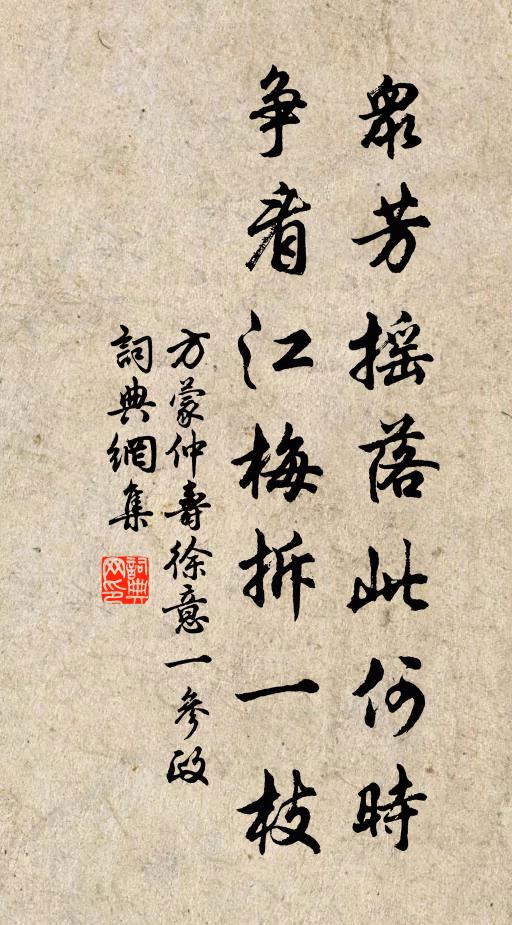 眾芳摇落此何時
争看江梅拆一枝
方蒙仲壽徐意一參政
詞典網集
詞典网印